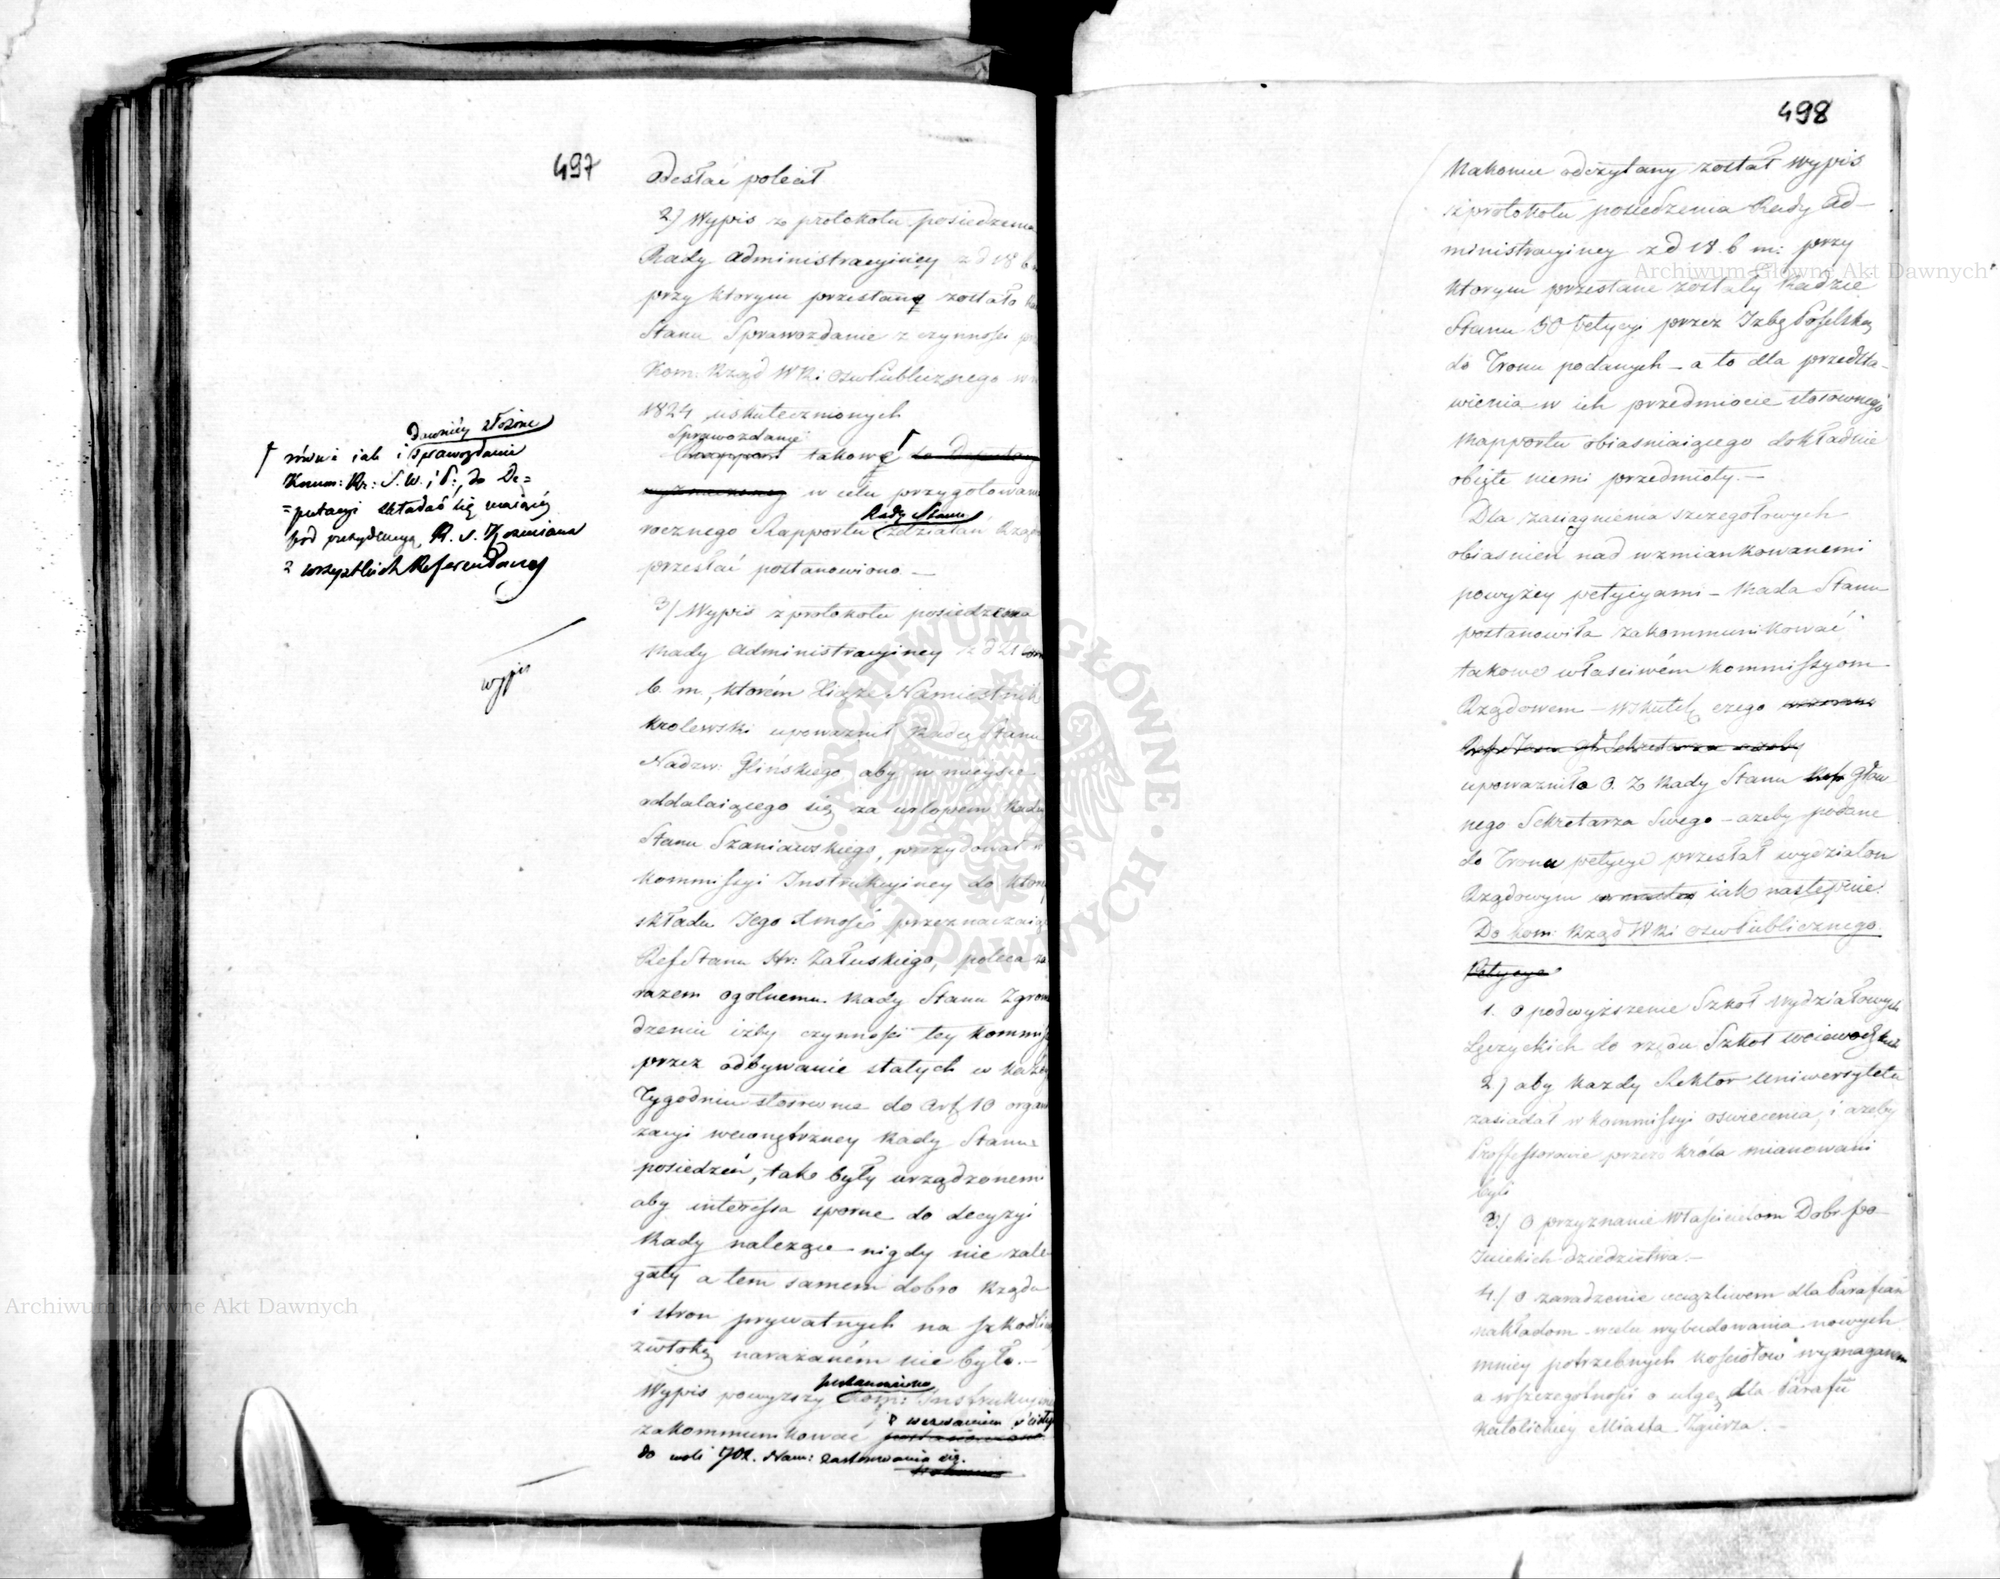 497
odesłać polecił
2) Wypis z protokołu posiedzenia
Rady Administracyiney z d 18 b
przy ktorym przesłane zostało
Stanu Sprawozdanie z czynności
Kom: Rząd WR i Ośw Publicznego
1824 uskutecznionych
Sprawozdanie
Rapport takowe do Deputacyi
wyznaczoney w celu przygotowania
Rady Stanu
rocznego Rapportu z działań Rządu
przesłać postanowiono —
Dawniéy złożone
równie iak i Sprawozdanie
Komm: Rz: S. W. i P:, do De=
=putacyi składać się maiącéy
pod prezydencyą R. S. Koźmiana
z wszystkich Referendarzy
3) Wypis z protokołu posiedzenia
Rady Administracyiney z d 21
b. m., ktorém Xiąże Namiestnik
Krolewski upoważnił Radcę Stanu
Nadzw: Glińskiego, aby w mieysce
oddalaiącego się za urlopem Radcy
Stanu Szaniawskiego, prezydował w
Kommissyi Instrukcyiney do ktorey
składu Jego Xmość przeznaczaiąc
Ref Stanu Hr: Załuskiego, poleca za
razem ogolnemu Rady Stanu Zgroma
dzeniu iżby czynności tey Kommissyi
przez odbywanie stałych w każdym
Tygodniu stosownie do Art 10 organi
zacyi wewnętrzney Rady Stanu
posiedzeń, tak były urządzonemi
aby interessa sporne do decyzyi
Rady należące nigdy nie zale
gały a tem samem dobro Rządu
i stron prywatnych na szkodliwą
zwłokę narażaném nie było. —
wypis
postanowiono
Wypis powyższy Kom: Instrukcyiney
z wezwaniem ścisłego
zakommunikować postanowiono
do woli JOX. Nam: zastosowania się.
Nakoniec
498
Nakoniec odczytany został Wypis
z protokołu posiedzenia Rady Ad-
ministracyiney z d 18. b m: przy
ktorym przesłane zostały Radzie
Stanu 50 Petycyi przez Izbę Poselską
do Tronu podanych — a to dla przedsta-
wienia w ich przedmiocie stosownego
Rapportu obiasniaiącego dokładnie
obięte niemi przedmioty. —
Dla zasiągnienia szczegołowych
obiasnień nad wzmiankowanemi
powyżey petycyami — Rada Stanu
postanowiła zakommunikować
takowe właściwém Kommissyom
Rządowem — Wskutek czego
upoważniła O. Z Rady Stanu Ref Głow
nego Sekretarza Swego — ażeby podane
do Tronu petycye przesłał wydziałom
Rządowym iak następnie.
Do Kom: Rząd WR i Ośw Publicznego.
Petycye
1. o podwyższenie Szkoł Wydziałowych
Łęczyckich do rzędu Szkoł Woiewodzkich
2) aby każdy Rektor Uniwersytetu
zasiadał w Kommissyi oswiecenia, i ażeby
Proffessorowie przez Króla mianowani
byli
3) o przyznanie Właścicielom Dobr po-
Juickich dziedzictwa. —
4) o zaradzenie uciążliwem dla Parafian
nakładom w celu wybudowania nowych
mniey potrzebnych kościołow wymaganem
a w szczegolności o ulgę dla Parafii
Katolickiey Miasta Zgierza. —
Archiwum Główne Akt Dawnych
Archiwum Główne Akt Dawnych
ARCHIWUM GŁÓWNE AKT DAWNYCH